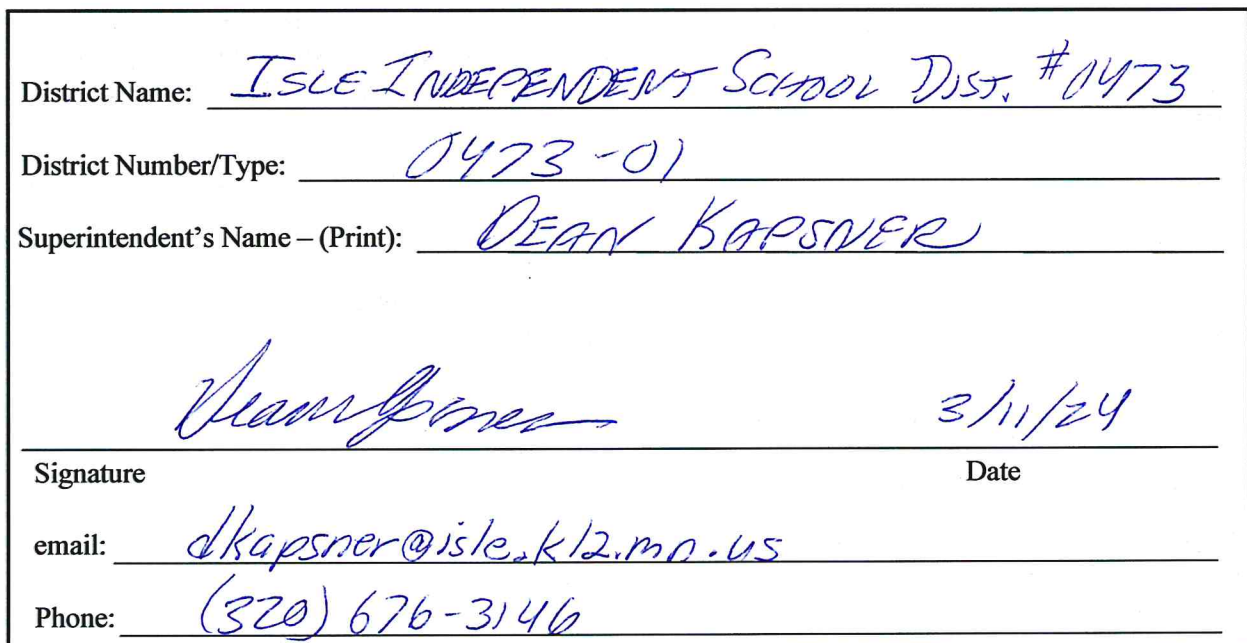 District Name: ISLE INDEPENDENT SCHOOL DIST. #0473
District Number/Type: 0473-01
Superintendent's Name – (Print): DEAN KAPSNER
3/11/24
Signature Date
email: dkapsner@isle.k12.mn.us
Phone: (320) 676-3146